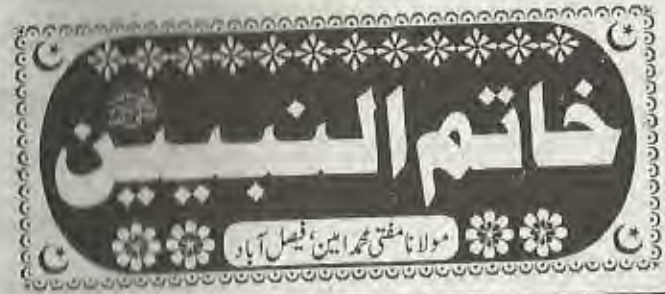 خاتم النبیین
مولانا مفتی محمد امین، فیصل آباد